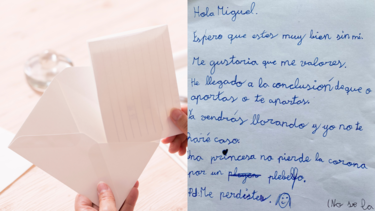 Hola Miguel.
Espero que estes muy bien sin mi.
Me gustaria que me valores.
He llegado a la conclusión de que o
aportas o te apartas.
Ya vendrás llorando y yo no te
haré caso.
Una princesa no pierde la corona
por un plebello.
Pd. Me perdistes.
(No se la